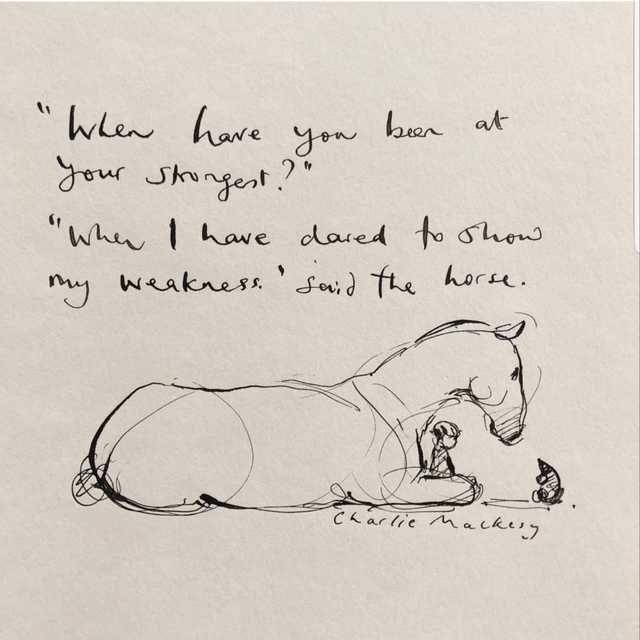 "When have you been at
your strongest?"
"When I have dared to show
my weakness." said the horse.
Charlie Mackesy